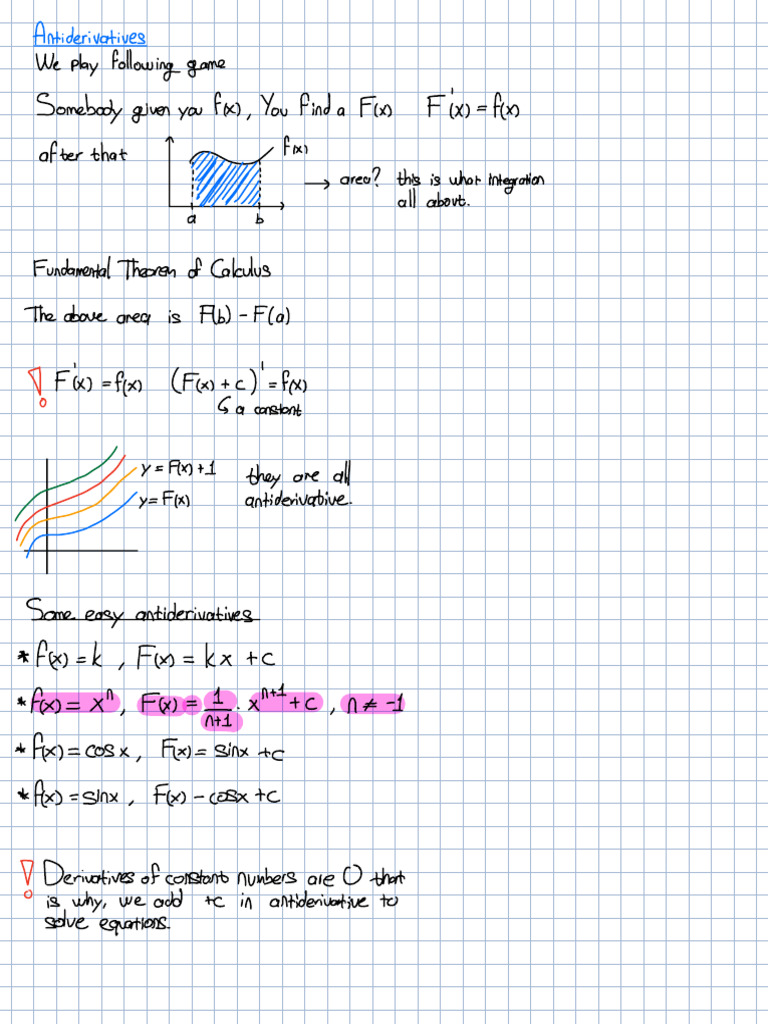 Antiderivatives
We play following game
Somebody given you f(x), You find a F(x) F'(x) = f(x)
after that
f(x)
→ area? this is what integration
all about.
a b
Fundamental Theorem of Calculus
The above area is F(b) - F(a)
! F'(x) = f(x) (F(x) + c)' = f(x)
↳ a constant
y = F(x) + 1
y = F(x)
they are all
antiderivative.
Some easy antiderivatives
* f(x) = k , F(x) = kx + c
* f(x) = xⁿ, F(x) = 1/(n+1) · xⁿ⁺¹ + c , n ≠ -1
* f(x) = cosx, F(x) = sinx + c
* f(x) = sinx , F(x) - cosx + c
! Derivatives of constant numbers are 0 that
is why, we add +c in antiderivative to
solve equations.